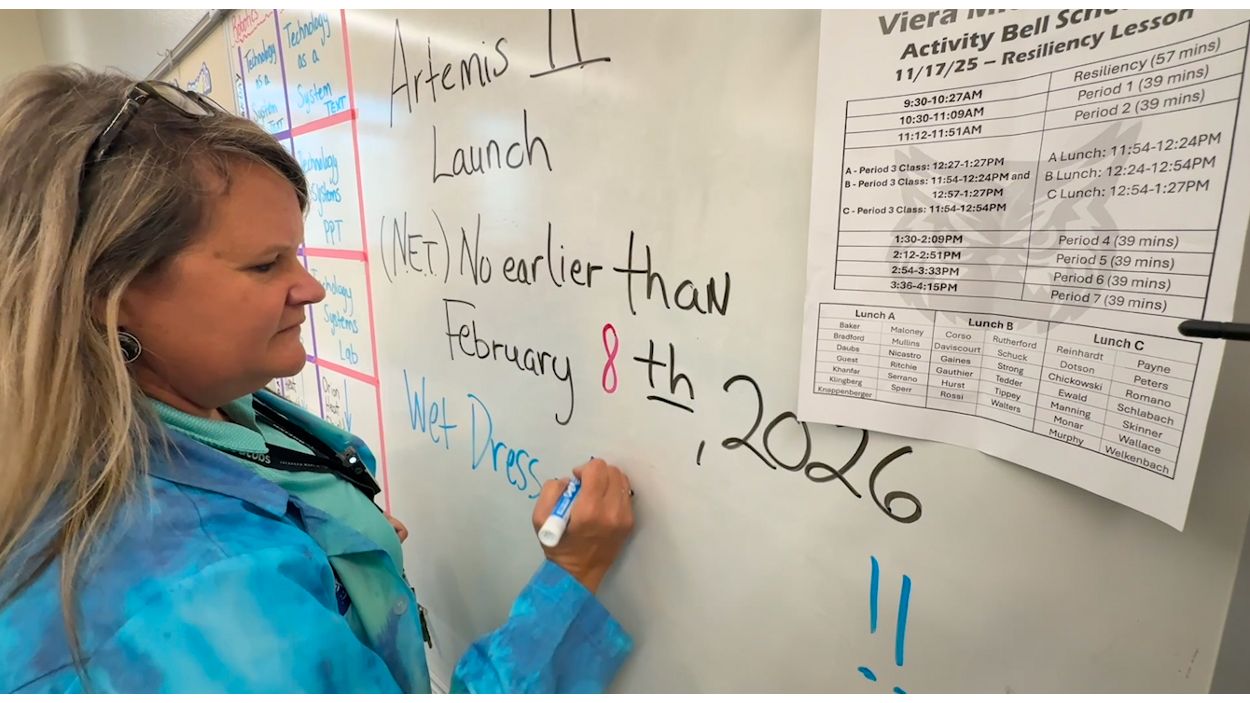 Robotics
Technology
as a
System
TEXT
Technology
as a
System
TEXT
Technology
Systems
PPT
Technology
Systems
Lab
Artemis II
Launch
(N.E.T.) No earlier than
February 8th, 2026
Wet Dress
!!
Viera
Activity Bell
11/17/25 – Resiliency Lesson
9:30-10:27AM Resiliency (57 mins)
10:30-11:09AM Period 1 (39 mins)
11:12-11:51AM Period 2 (39 mins)
A - Period 3 Class: 12:27-1:27PM
B - Period 3 Class: 11:54-12:24PM and
12:57-1:27PM
C - Period 3 Class: 11:54-12:54PM
A Lunch: 11:54-12:24PM
B Lunch: 12:24-12:54PM
C Lunch: 12:54-1:27PM
1:30-2:09PM Period 4 (39 mins)
2:12-2:51PM Period 5 (39 mins)
2:54-3:33PM Period 6 (39 mins)
3:36-4:15PM Period 7 (39 mins)
Lunch A Lunch B Lunch C
Baker Maloney Corso Rutherford Reinhardt Payne
Bradford Mullins Daviscourt Schuck Dotson Peters
Daubs Nicastro Gaines Strong Chickowski Romano
Guest Ritchie Gauthier Tedder Ewald Schlabach
Khanfar Serrano Hurst Tippey Manning Skinner
Klingberg Sperr Rossi Walters Monar Wallace
Knappenberger Murphy Welkenbach